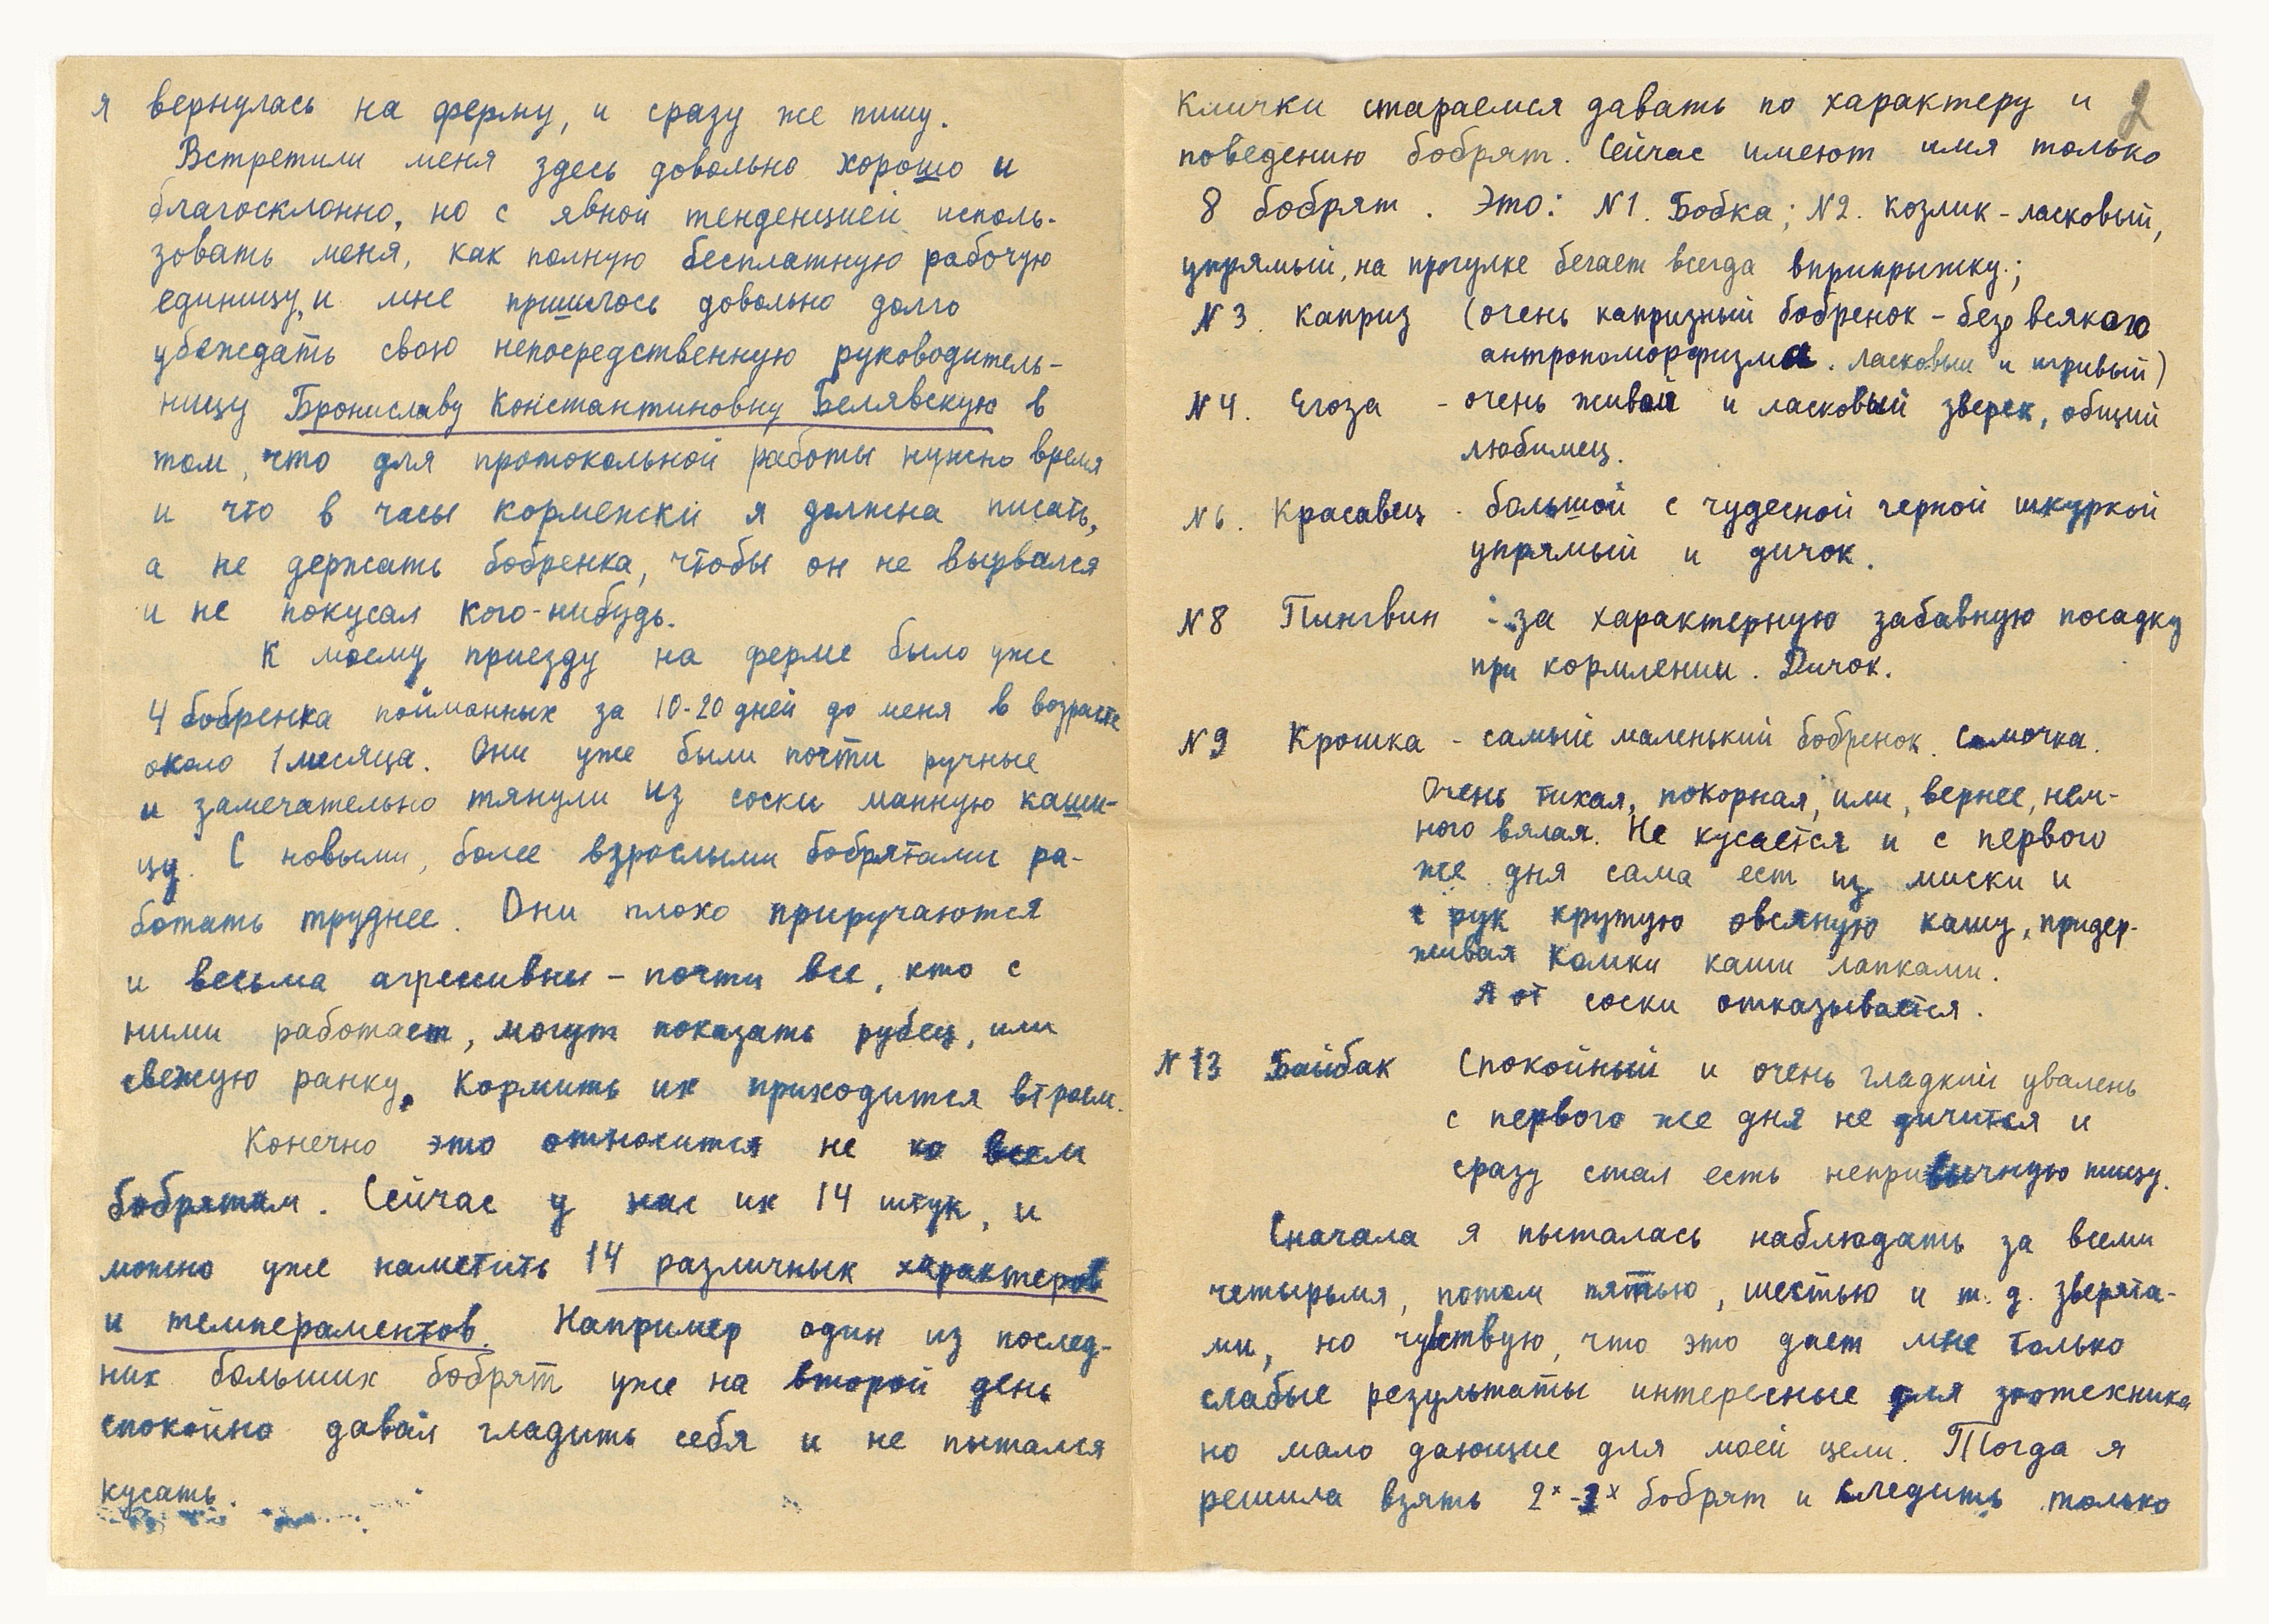 я вернулась на ферму, и сразу же пишу.
Встретили меня здесь довольно хорошо и
благосклонно, но с явной тенденцией исполь-
зовать меня, как полную бесплатную рабочую
единицу, и мне пришлось довольно долго
убеждать свою непосредственную руководитель-
ницу Брониславу Константиновну Белявскую в
том, что для протокольной работы нужно время
и что в часы кормежки я должна писать,
а не держать бобренка, чтобы он не вырвался
и не покусал кого-нибудь.
К моему приезду на ферме было уже
4 бобренка пойманных за 10-20 дней до меня в возрасте
около 1 месяца. Они уже были почти ручные
и замечательно тянули из соски манную каши-
цу. С новыми, более взрослыми бобрятами ра-
ботать труднее. Они плохо приручаются
и весьма агрессивны - почти все, кто с
ними работает, могут показать рубец, или
свежую ранку. Кормить их приходится втроем.
Конечно это относится не ко всем
бобрятам. Сейчас у нас их 14 штук, и
можно уже наметить 14 различных характеров
и темпераментов. Например один из послед-
них больших бобрят уже на второй день
спокойно давал гладить себя и не пытался
кусать.
2
Клички стараемся давать по характеру и
поведению бобрят. Сейчас имеют имя только
8 бобрят. Это: N1. Бобка; N2. козлик - ласковый,
упрямый, на прогулке бегает всегда вприпрыжку.;
N 3. каприз (очень капризный бобренок - безо всякого
антропоморфизма. ласковый и игривый)
N 4. Егоза - очень живой и ласковый зверек, общий
любимец.
N 6. Красавец - большой с чудесной черной шкуркой
упрямый и дичок.
N 8 Пингвин : за характерную забавную посадку
при кормлении. Дичок.
N 9 Крошка - самый маленький бобренок. Самочка.
Очень тихая, покорная, или, вернее, нем-
ного вялая. Не кусается и с первого
же дня сама ест из миски и
с рук крутую овсяную кашу, придер-
живая комки каши лапками.
А от соски отказывается.
N 13 Байбак Спокойный и очень гладкий увалень
с первого же дня не дичится и
сразу стал есть непривычную пищу.
Сначала я пыталась наблюдать за всеми
четырьмя, потом пятью, шестью и т. д. зверята-
ми, но чувствую, что это дает мне только
слабые результаты интересные для зоотехника
но мало дающие для моей цели. Тогда я
решила взять 2х-3х бобрят и следить только